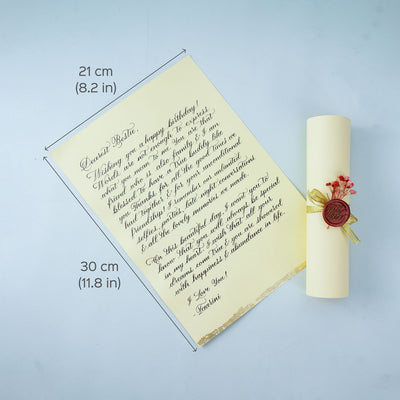 21 cm
(8.2 in)
30 cm
(11.8 in)
Dearest Bestie,
Wishing you a happy birthday!
Words are not enough to express
what you mean to me. You are that
friend who is also family & I am
blessed to have a true buddy like
you. Thanks for all the good times we
had together & for our unconditional
friendship. I remember our unlimited
selfies, parties, late night conversations
& all the lovely memories we made.
On this beautiful day, I want you to
know that you will always be special
in my heart. I wish that all your
dreams come true & you are showered
with happiness & abundance in life.
I Love You!